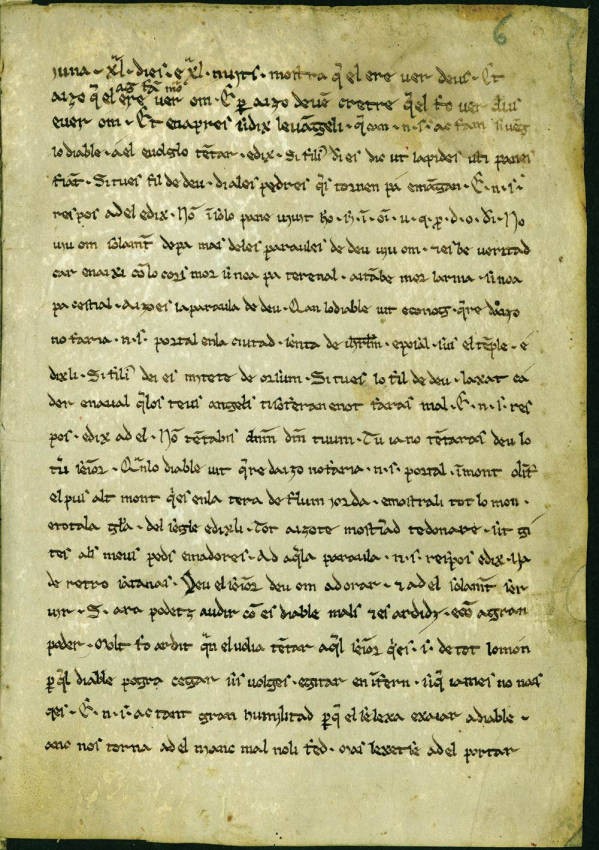 6
iuna · xl · dies · e xl · nuyts · mostra q̄ el ere ver deus · Et
ag fā mō
aizo q̄ el ere ver om · E ꝑ aizo devē creire q̄ el fo ver dius
e ver om · Et enapres n̄s dix levangeli · q̄can · n · s · ac fam
lo diable · a el e volg lo tētar · e dix · Si fili dī es dic ut lapides isti panes
fiāt · Si tu es fil de deu · di a les pedres q̄s tornen pā e mā̄gan · E · n · s ·
respos ad el e dix · Nō ī solo pane vivit ho · s · ī · oī · v · q · p · d · o · dī · No
viu om solamt̄ de pa mas de les paraules de deu viu om · e es be veritad
car enaixi cō lo cors mor si no a pa terenal · aitābe mor larma · si no a
pa celestial · Aizo es la paraula de deu · Qan lo diable vit e conog · q̄re daizo
no faria · n · s · portal en la ciutad · sēnta de ihrlm · e posàl · sus el tēple · e
dix li · Si fili dei es mitete deorsum · Si tu es lo fil de deu · laxat ca
der enaval q̄ los teus angels ti sosteran e not faras mal · E · n · s · res
pos · e dix ad el · Nō tētabis dn̄m dm̄ tuum · Tu ia no tētaras deu lo
tu seior · Qn̄ lo diable vit q̄re daizo no faria · n · s · portal · ī mont
el pus alt mont q̄ es en la tera de flum jorda · e mostra li tot lo mon ·
e tota la gl̄a · del segle e dix li · Tot aizo te mostrad te donare · sit gi
tes als meus peds e madores · Ad aq̄la paraula · n · s · respos e dix · Va
de retro satanas · Deu el seior deu om adorar · e ad el solamt̄ ser
vir · S · ara podetz audir cō es diable mals e es ardidz · e cō a gran
poder · Molt fo ardit qn̄ el volia tētar aq̄l seior q̄ es · s · de tot lo mon
ꝑ q̄l diable pogra cegar sis volges · e gitar en īfern · si q̄ iames no nos
qes · E · n · s · ac tant gran humilitad ꝑ q̄ el se lexa exaiar a diable ·
ano nos torna ad el manc mal no li fed · Mas lexet se ad el portar